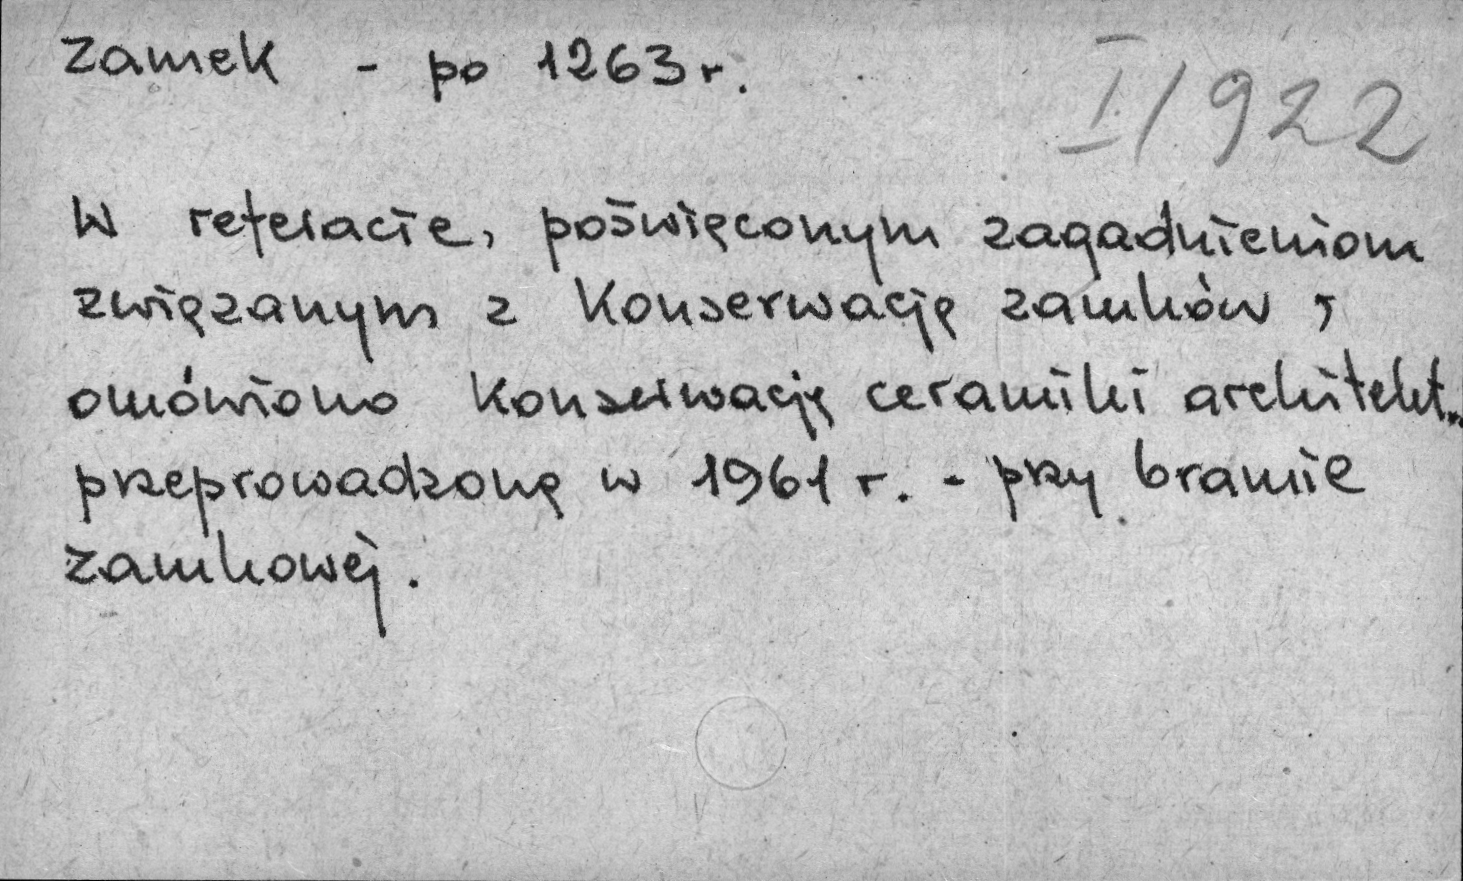 Zamek - po 1263 r.
I/922
W referacie, poświęconym zagadnieniom
związanym z konserwacją zamków,
omówiono konserwację ceramiki architekt..
przeprowadzoną w 1961 r. - przy bramie
zamkowej.